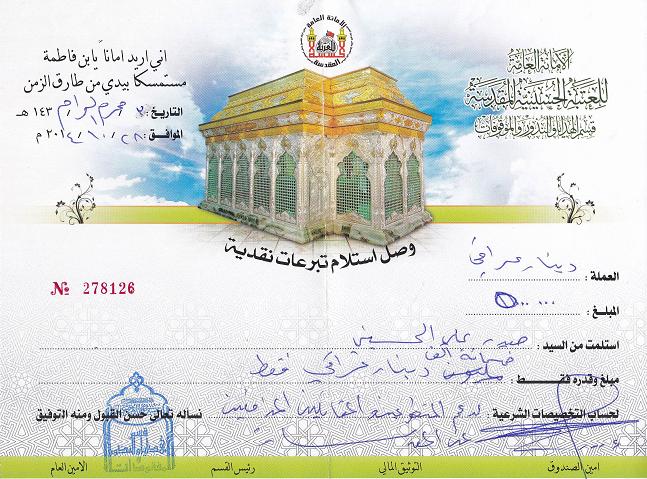 الأمانة العامة
للعتبة الحسينية المقدسة
قسم الهدايا والنذور والموقوفات
الأمانة العامة
للعتبة الحسينية
المقدسة
اني اريد اماناً يا بن فاطمة
مستمسكا بيدي من طارق الزمن
التاريخ : محرم الحرام ١٤٣ هـ
الموافق : ٢٨ / ١٠ / ٢٠١٤ م
وصل استلام تبرعات نقدية
№ 278126
العملة : دينار عراقي
المبلغ : ٥٠٠٠٠٠
استلمت من السيد : حيدر علي الحسيني
خمسمائة الف
مبلغ وقدره فقط : مليون دينار عراقي فقط
لحساب التخصيصات الشرعية : لدعم المتطوعين المقاتلين نسأله تعالى حسن القبول ومنه التوفيق
امين الصندوق التوثيق المالي رئيس القسم الامين العام